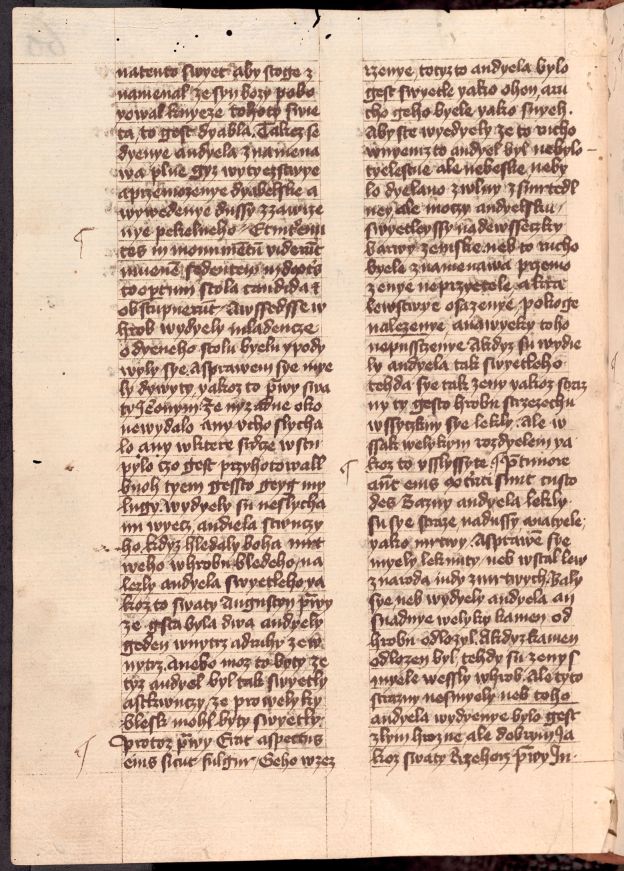 natento swyet aby stoge z
namenal ze syn bozy pobo
yowal knyeze tohoto swie
ta, to gest dyabla, Takez se
dyenye andyela znamena
wa plne gyz wytyezstwye
a przemozenye dyabelske a
wywedenye dussy zzawrze
nye pekelneho Et introeun
tes in monumentu viderut
iuuene sedentem in dextris
coopertum stola candida et
obstupuerut Awssedsse w
hrob wydyely mladencze
odyeneho stolu byelu ypody
wyly sye. Asprawem sye mye
ly dywyty, yakoz to prwy swa
ty Jeronym. Ze nyzadne oko
newydalo any vcho slycha
lo any wktere srdcze wstu
pylo czo gest przyhotowall
buoh tyem gessto geyg my
lugy. wydyely su neslycha
nu wyecz, andiela stwuczy
ho. kdyz hledaly boha mrt
weho whrobu bledeho, na
lezly andyela swyetleho ya
koz to swaty Augustyn prwy
ze gsta byla dwa andyely
geden wnytrz a druhy zew
nytrz. anebo moz to byty ze
tyz andyel byl tak swyetly
a stkwuczy, ze pro welyky
blesk mohl byty swyetly.
Protoz prwy Erat aspectus
eius sicut fulgur, Geho wzez
rzenye, totyzto andyela bylo
gest swyetle yako ohen, a ru
cho geho byele yako snyeh.
Aby ste wyedyely ze to rucho
wnyemz to andyel byl nebylo
tyelestne ale nebeske, neby
lo dyelano z wlny z smrtedl
ney ale moczy andyelsku
swyetleyssy nadewsseczky
barwy zemske. neb to rucho
byele znamenawa przemo
zenye neprzyetele, a kra
lewstwye osazenye, pokoge
nalezenye, anawyeky toho
nepusstzenye Akdyz su wydye
ly andyela tak swyetleho
tehda sye tak zeny yakoz straz
ny ty gesto hrobu strzezechu
wssyczkny sye lekly. Ale w
ssak welykym rozdyelem ya
koz to vsslyssyte Pre timore
aut eius exterriti sunt custo
des Bazny andyela lekly
su sye straze nadussy, matyele;
yako mrtwy. Asprawe sye
myely leknuty neb wstal lew
z naroda iudy z mrtwych. Baly
sye neb wydyely andyela an
snadnye welyky kamen od
hrobu odlozyl. Akdyz kamen
odlozen byl, tehdy su zeny s
myele wessly whrob. Ale tyto
strazny nesmyely neb toho
andyela wydyenye bylo gest
zlym hrozne ale dobrym Ja
koz swaty Rzehorz prwy In